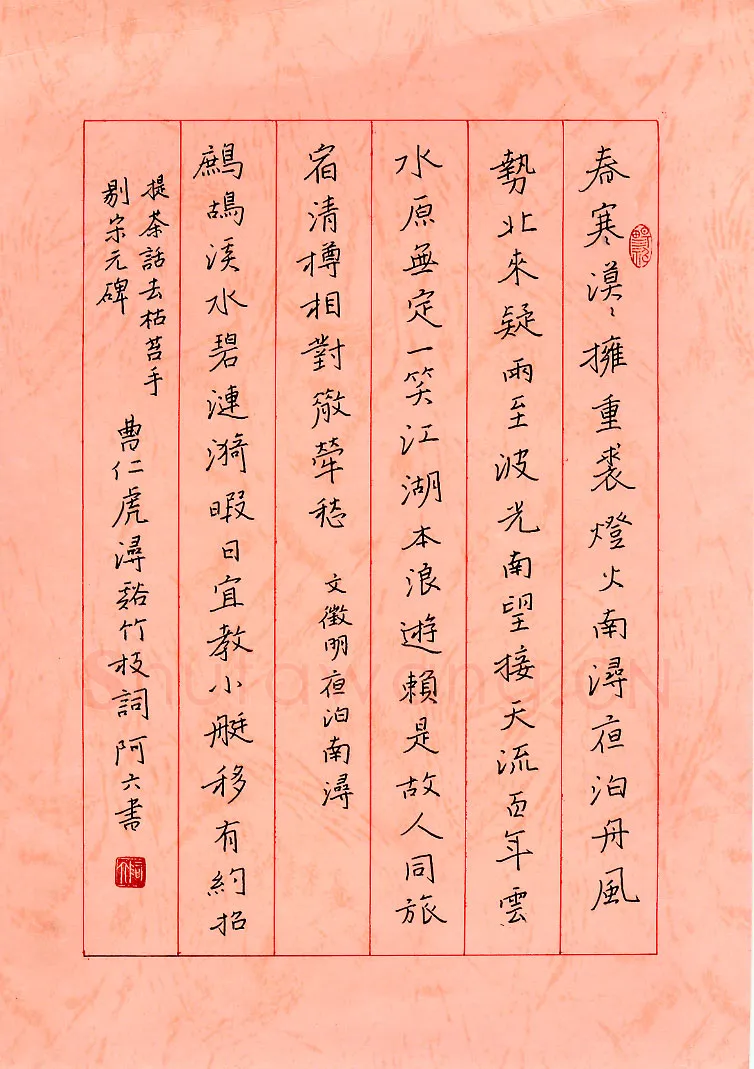 春寒漠〻擁重裘燈火南潯夜泊舟風
勢北來疑雨至波光南望接天流百年雲
水原無定一笑江湖本浪遊賴是故人同旅
宿清樽相對散牽愁 文徵明夜泊南潯
鷓鴣溪水碧漣漪暇日宜教小艇移有約招
提茶話去枯苔手
剔宋元碑 曹仁虎潯谿竹枝詞 阿六書